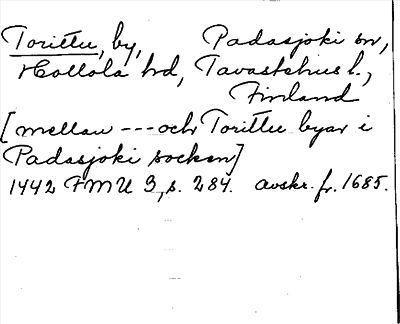 Torittu, by, Padasjoki sn,
Hollola hd, Tavastehus l.,
Finland
[mellan --- och Torittu byar i
Padasjoki socken]
1442 FMU 3, s. 284. avskr. fr. 1685.